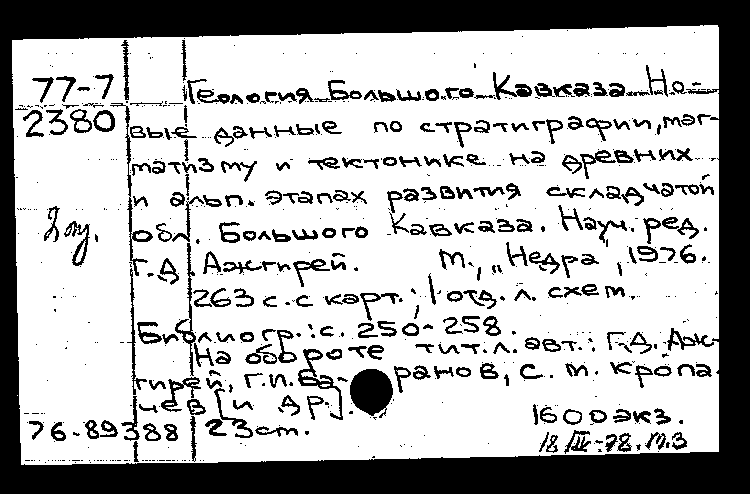 77-7 Геология Большого Кавказа Но-
2380 вые данные по стратиграфии, маг-
матизму и тектонике на древних
и альп. этапах развития складчатой
обл. Большого Кавказа. Науч. ред.
Г.Д. Ажгирей. М., „Недра", 1976.
263 с. с карт.; 1 отд. л. схем.
Библиогр.: с. 250-258.
На обороте тит. л. авт.: Г.Д. Аж-
гирей, Г.И. Ба- ранов, С. М. Кропа-
чев [и др.].
76-89388 23 см. 1600 экз.